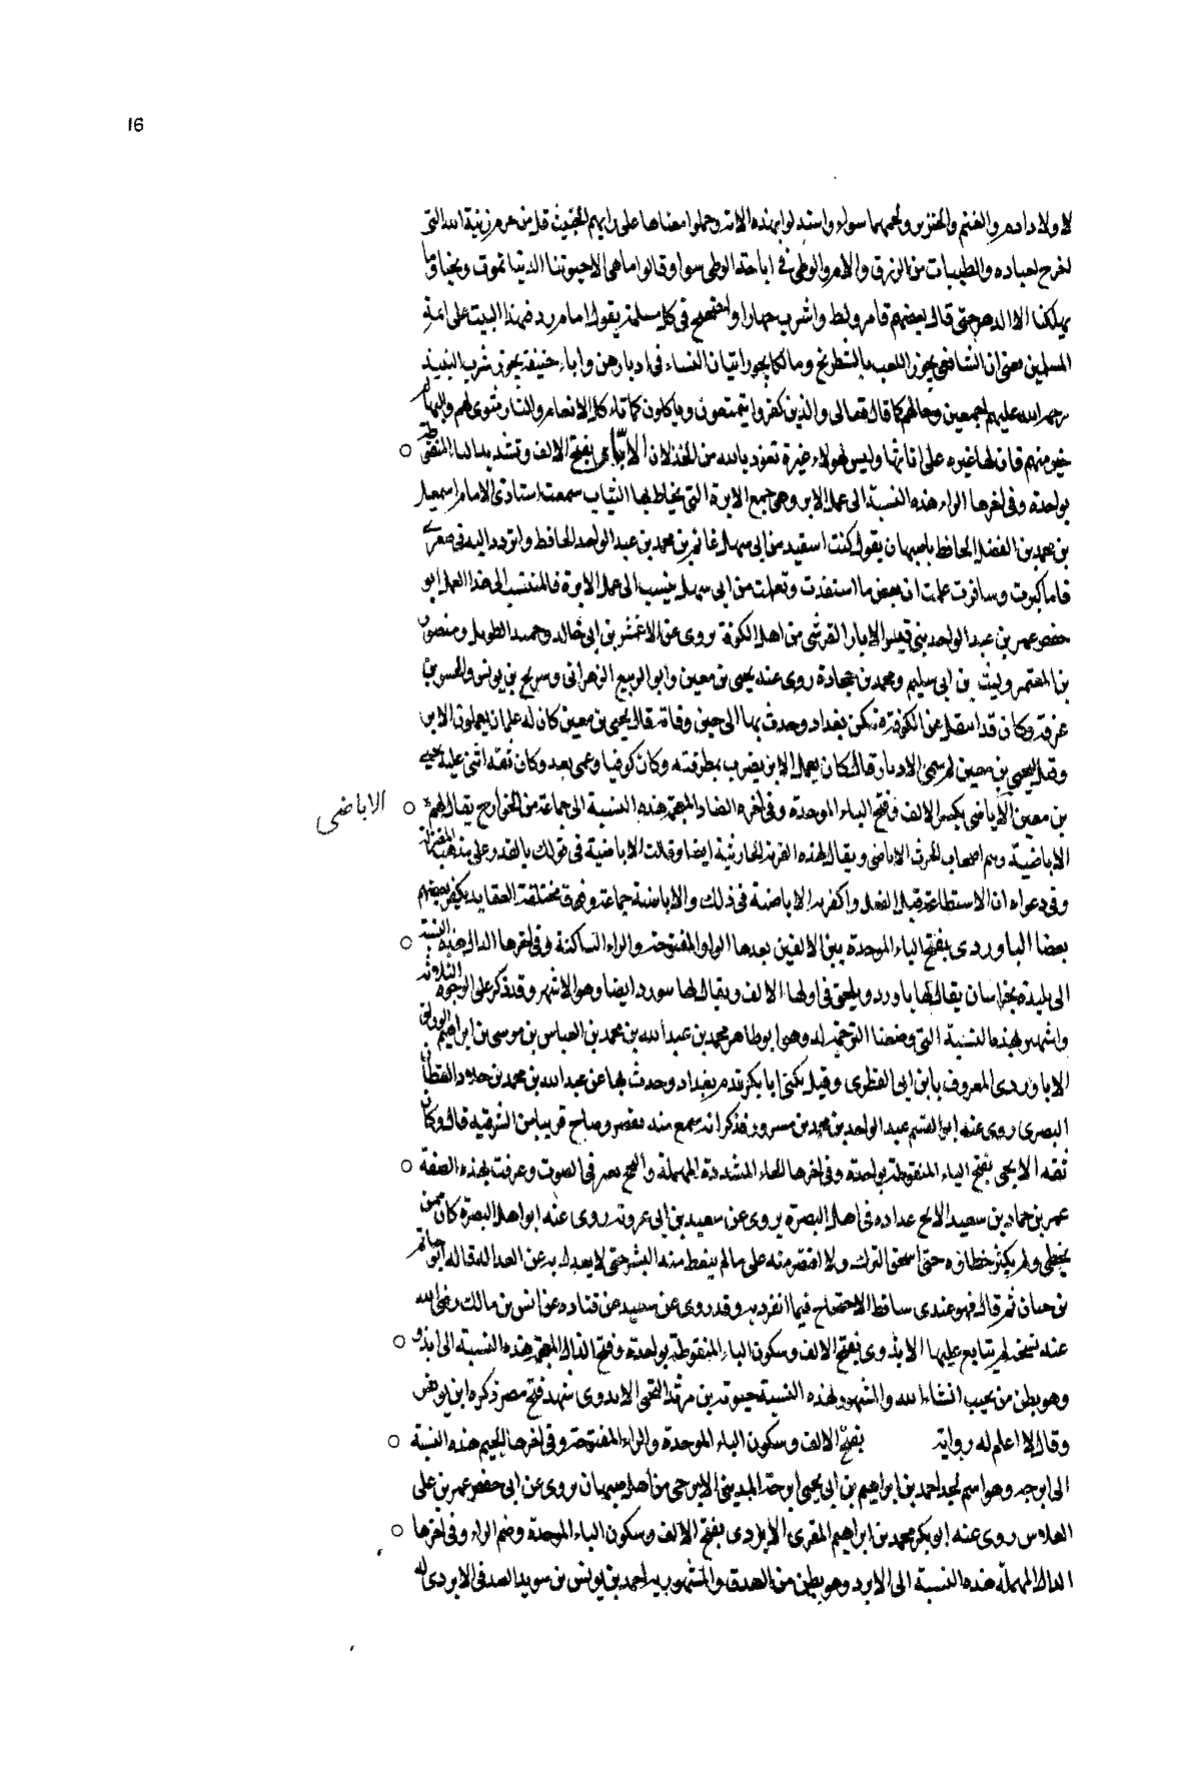 16
لاولاد ادم والغنم والخنزير ولحمهما سواء واستدلوا بهذه الاية وحملوا معناها على رايهم الخبيث قل من حرم زينة الله التى
اخرج لعباده والطيبات من الرزق والام والوطى فى اباحة الوطى سوا وقالوا ما هى الا حيوتنا الدنيا نموت ونحيا وما
يهلكنا الا الدهر حتى قال بعضهم قامر ولط واشرب جهارا واحتج فى كل مسلة بقول امام يريد بهذا البيت على ائمة
المسلمين يعنى ان الشافعى يجوز اللعب بالشطرنج ومالكا يجوز اتيان النساء فى ادبارهن وابا حنيفة يجوز شرب النبيذ
رحمة الله عليهم اجمعين وحالهم كما قال تعالى والذين كفروا يتمتعون وياكلون كما تاكل الانعام والنار مثوى لهم والبهائم
خير منهم فان لها غيره على اناثها وليس لهولاء غيرة نعوذ بالله من الخذلان الابّارى بفتح الالف وتشديد الباء المنقوطة ○
بواحدة وفى اخرها الراء هذه النسبة الى عمل الابر وهى جمع الابرة التى يخاط بها الثياب سمعت استاذى الامام اسمعيل
بن محمد بن الفضل الحافظ باصبهان يقول كنت استفيد من ابى سهل غانم بن محمد بن عبد الواحد الحافظ واتردد اليه فى صغرى
فلما كبرت وسافرت علمت ان بعض ما استفدت وتعلمت من ابى سهل ينسب الى عمل الابرة فالمنتسب الى هذا العمل ابو
حفص عمر بن عبد الواحد بن قيس الابار القرشى من اهل الكوفة يروى عن الاعمش بن ابى خالد وحميد الطويل ومنصور
بن المعتمر وليث بن ابى سليم ومحمد بن جحادة روى عنه يحيى بن معين وابو الربيع الزهرانى وسريج بن يونس والحسن بن
عرفة وكان قد انتقل عن الكوفة فسكن بغداد وحدث بها الى حين وفاته قال يحيى بن معين كان له غلمان يعملون الابر
وقيل ليحيى بن معين لم سمى الابار قال كان يعمل الابر يضرب بمطرقته وكان كوفيا وعمى بعد وكان ثقة اثنى عليه يحيى
بن معين الاباضى بكسر الالف وفتح الباء الموحدة وفى اخره الضاد المعجمة هذه النسبة الى جماعة من الخوارج يقال لهم ○
الاباضى
الاباضية وهم اصحاب الحرث الاباضى ويقال لهذه الفرقة الحارثية ايضا وقالت الاباضية فى قولك بالقدر على مذهب المعتزلة
وفى دعواه ان الاستطاعة قبل الفعل واكفره الاباضية فى ذلك والاباضية جماعة وفرق مختلفة العقايد يكفر بعضهم
بعضا الباوردى بفتح الباء الموحدة بين الالفين بعدها الواو المفتوحة والراء الساكنة وفى اخرها الدال هذه النسبة ○
الى بليدة بخراسان يقال لها باورد ويلحق فى اولها الالف ويقال لها ابيورد ايضا وهو الاشهر وقد ذكر على الوجوه الثلاثة
واشتهر بهذه النسبة التى وضعنا الترجمة له وهو ابو طاهر محمد بن عبد الله بن محمد بن العباس بن موسى بن ابراهيم الوراق
الاباوردى المعروف بابن ابى القطرى وقيل يكنى ابا بكر قدم بغداد وحدث بها عن عبد الله بن محمد بن خلاد القطان
البصرى روى عنه ابو القسم عبد الواحد بن محمد بن مسرور فذكر انه سمع منه بقصر وضاح قريبا من الشرقية قال وكان
ثقه الابحى بفتح الباء المنقوطة بواحدة وفى اخرها الحاء المشددة المهملة والبح يعرف فى الصوت وعرفت بهذه الصفة ○
عمر بن حماد بن سعيد الابح عداده فى اهل البصرة يروى عن سعيد بن ابى عروبة روى عنه ابو اهل البصرة كان ممن
يخطى ولم يكثر خطاؤه حتى استحق الترك ولا اقتصر منه على ما لم ينفك منه البشر حتى لا يعدل به عن العدالة قاله ابو حاتم
بن حبان ثم قال فهو عندى ساقط الاحتجاج فيما انفرد به وقد روى عن سعيد عن قتاده عن انس بن مالك رضى الله
عنه نسخة لم يتابع عليها الابذوى بفتح الالف وسكون الباء المنقوطة بواحدة وفتح الذال المعجمة هذه النسبة الى ابذو ○
وهو بطن من تجيب انشاء الله والمشهور لهذه النسبة حيوة بن مرثد التجى الابدوى شهد فتح مصر ذكره ابن يونس
وقال لا اعلم له رواية بفتح الالف وسكون الباء الموحدة والراء المفتوحة وفى اخرها الجيم هذه النسبة ○
الى ابوجه وهو اسم لجد احمد بن ابراهيم بن ابى يحيى ابوجّة المدينى الابرجى من اهل اصبهان يروى عن ابى حفص عمر بن على
الفلاس روى عنه ابو بكر محمد بن ابراهيم المقرى الابردى بفتح الالف وسكون الباء الموحدة وضم الراء وفى اخرها ○
الدال المهملة هذه النسبة الى الابرد وهو بطن من الصدف والمشهور به احمد بن يونس بن سويد الصدفى الابردى له